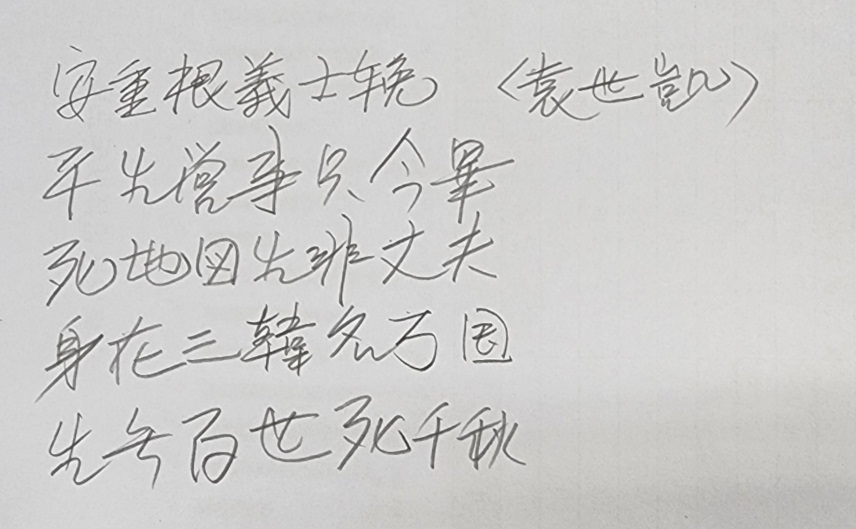 安重根義士輓 〈袁世凱〉
平生営事只今畢
死地図生非丈夫
身在三韓名万国
生無百世死千秋